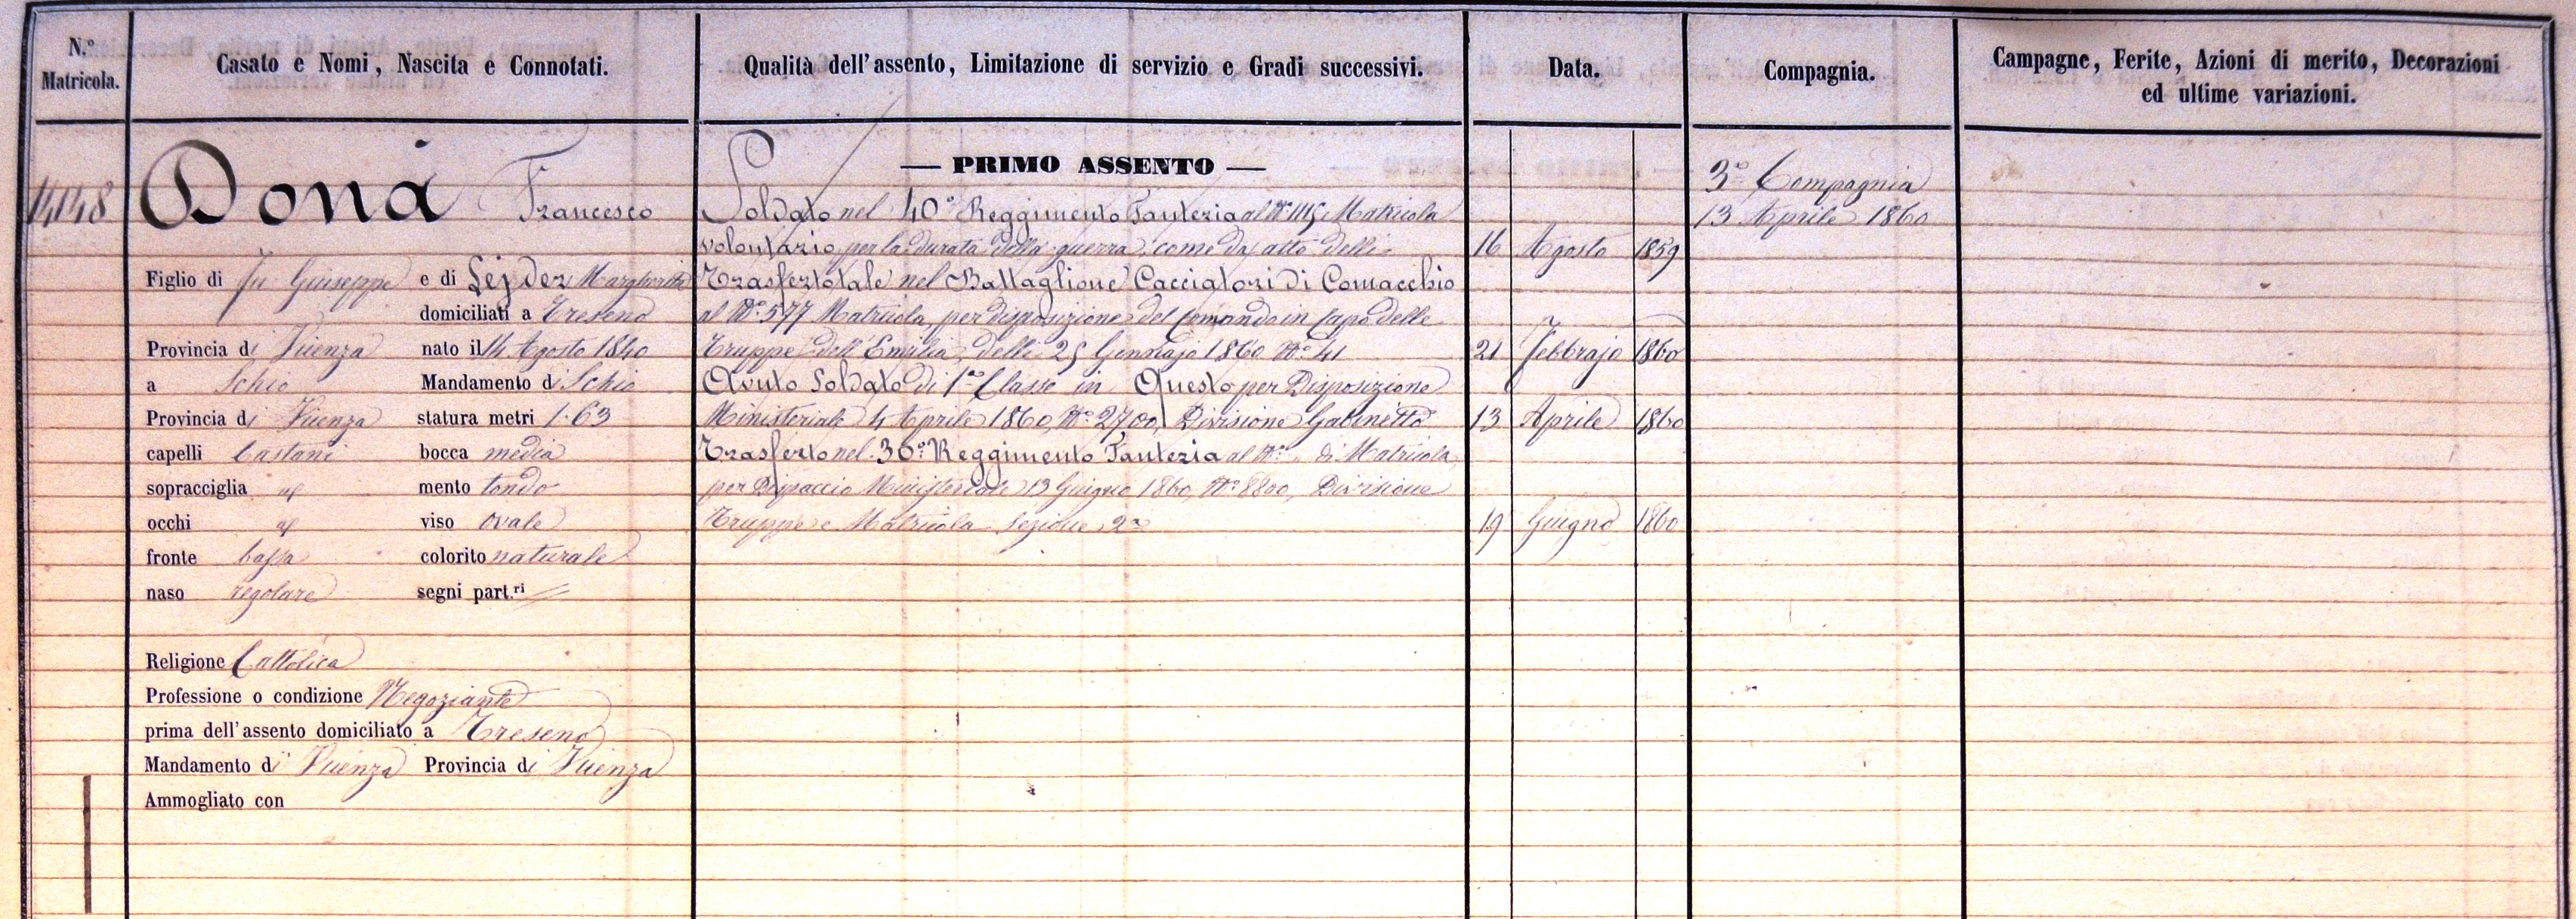 N.º Matricola.
Casato e Nomi, Nascita e Connotati.
Qualità dell'assento, Limitazione di servizio e Gradi successivi.
Data.
Compagnia.
Campagne, Ferite, Azioni di merito, Decorazioni
ed ultime variazioni.
Donà Francesco
Figlio di fu Giuseppe e di Lejder Margherita
domiciliati a Treseno
Provincia di Vicenza nato il 14 Agosto 1840
a Schio Mandamento di Schio
Provincia di Vicenza statura metri 1.63
capelli Castani bocca media
sopracciglia id mento tondo
occhi id viso ovale
fronte bassa colorito naturale
naso regolare segni part.ri
Religione Cattolica
Professione o condizione Negoziante
prima dell'assento domiciliato a Treseno
Mandamento di Vicenza Provincia di Vicenza
Ammogliato con
— PRIMO ASSENTO —
Soldato nel 40º Reggimento Fanteria al Nº Matricola
volontario per la durata della guerra, come da atto delli 16 Agosto 1859
Trasferto tale nel Battaglione Cacciatori di Comacchio
al Nº 577 Matricola per disposizione del Comando in Capo delle
Truppe dell'Emilia, delli 25 Gennajo 1860 Nº 41 21 Febbrajo 1860
Avuto Soldato di 1ª Classe in Questo per Disposizione
Ministeriale 4 Aprile 1860, Nº 2700, Divisione Gabinetto 13 Aprile 1860
Trasferto nel 36º Reggimento Fanteria al Nº „ di Matricola,
per Dispaccio Ministeriale 13 Giugno 1860, Nº 8800, Divisione
Truppe e Matricola Sezione 2ª 19 Giugno 1860
3ª Compagnia
13 Aprile 1860